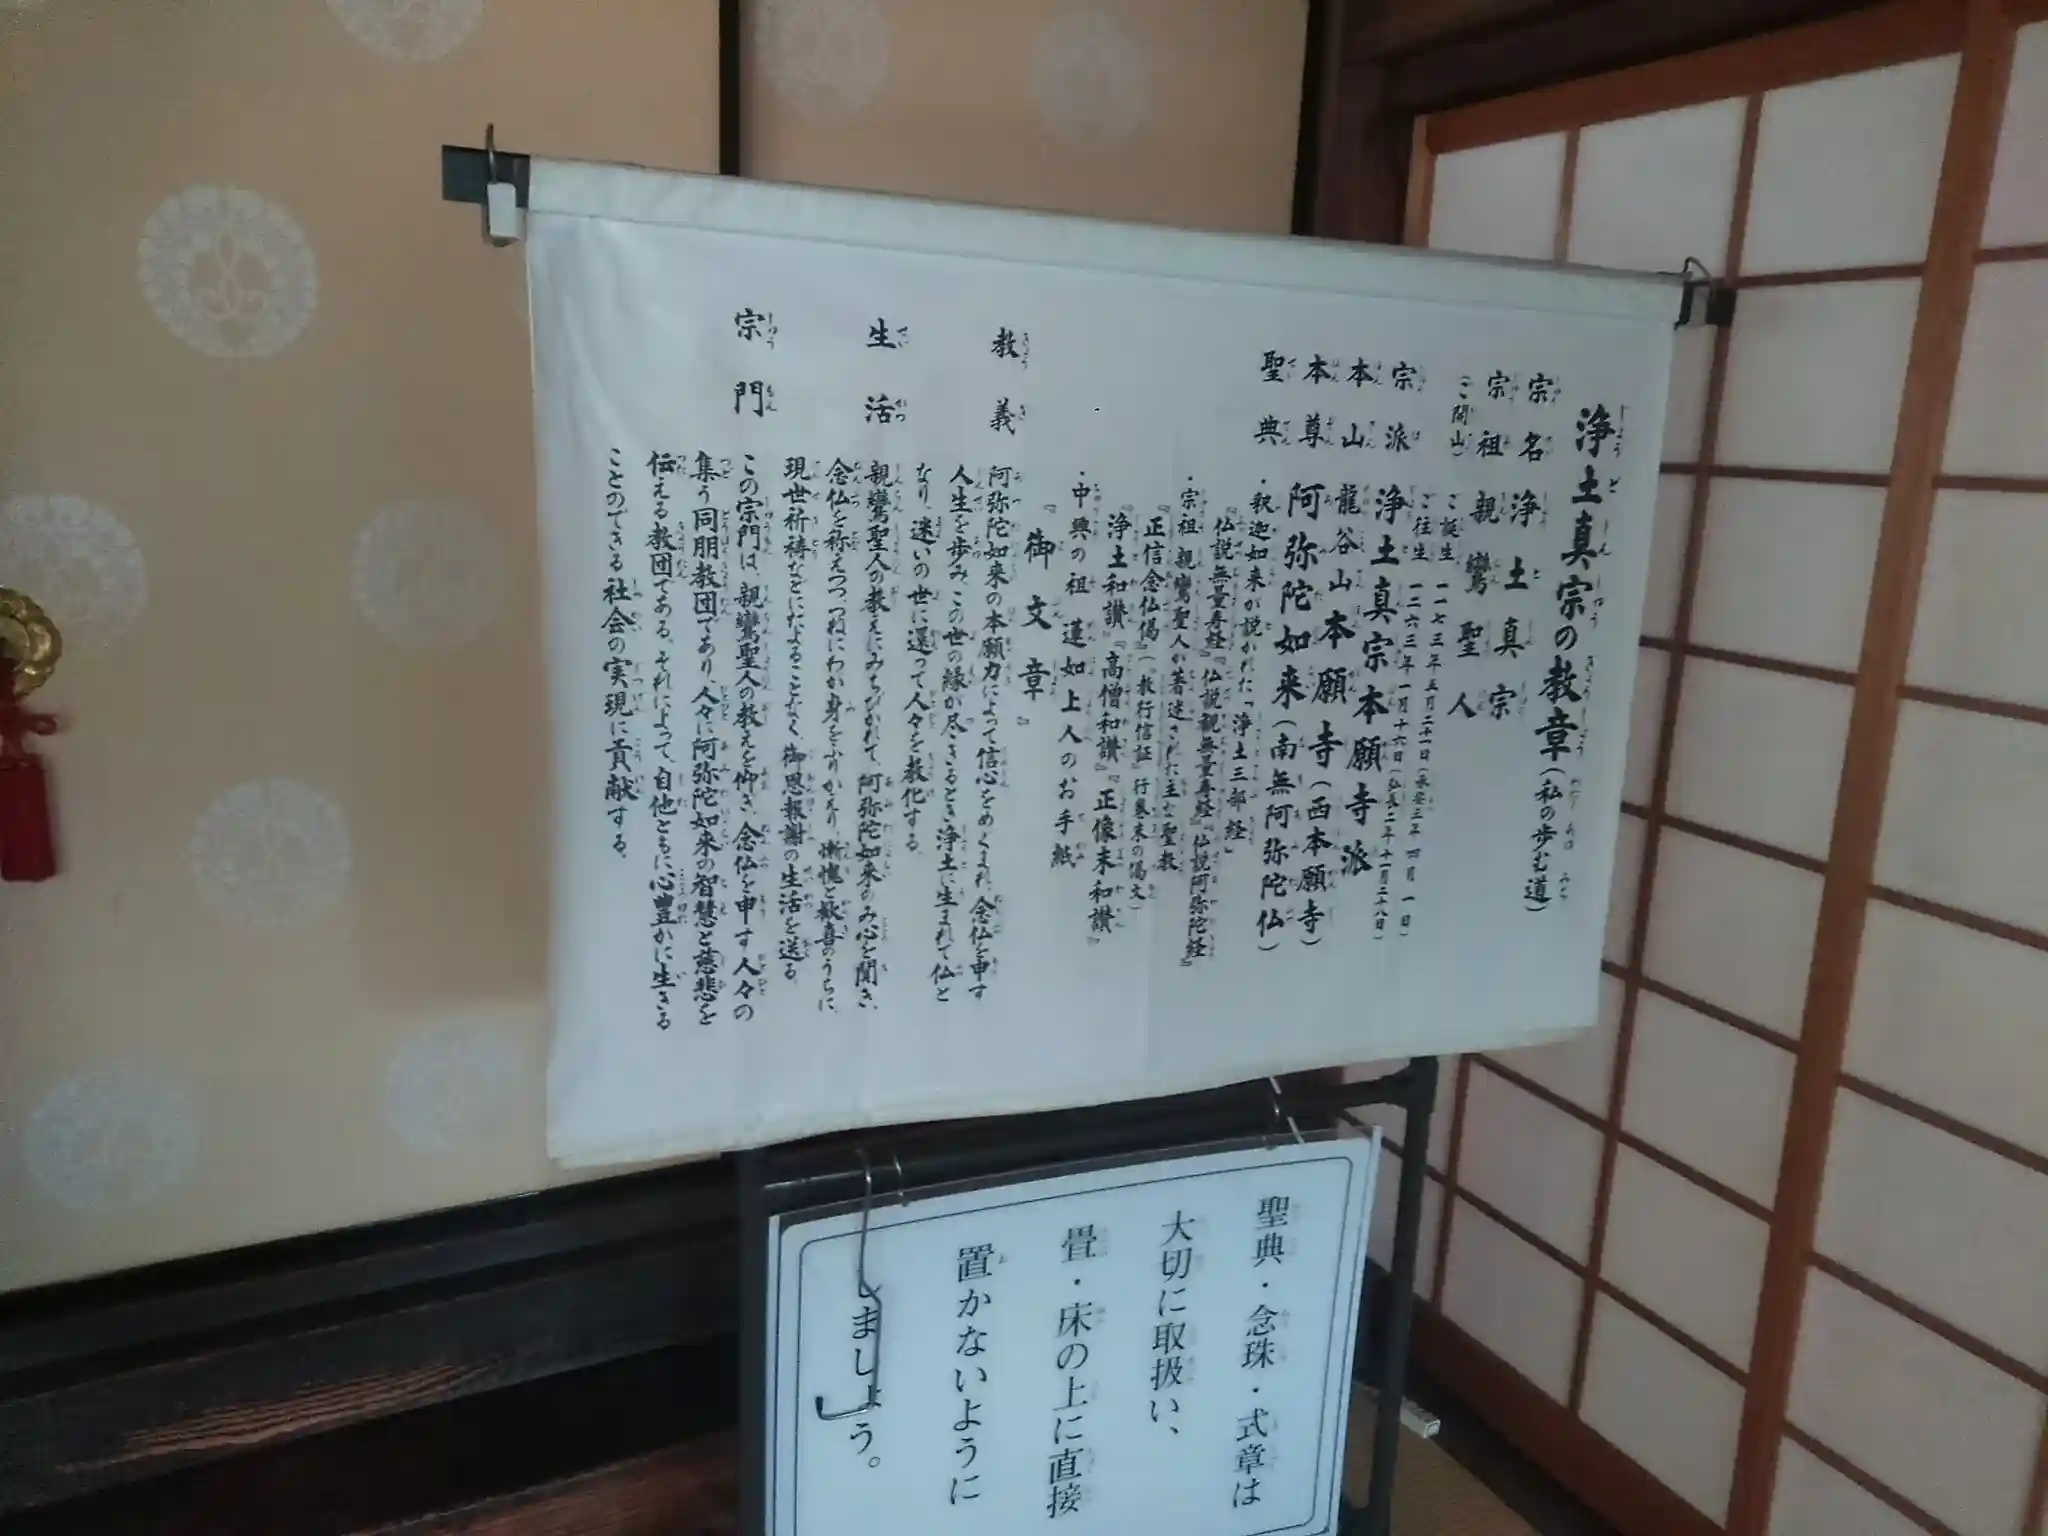 浄土真宗の教章（私の歩む道）
宗名　浄土真宗
宗祖　親鸞聖人
（ご開山）　ご誕生　一一七三年五月二十一日（承安三年四月一日）
ご往生　一二六三年一月十六日（弘長二年十一月二十八日）
宗派　浄土真宗本願寺派
本山　龍谷山本願寺（西本願寺）
本尊　阿弥陀如来（南無阿弥陀仏）
聖典　・釈迦如来が説かれた「浄土三部経」
『仏説無量寿経』『仏説観無量寿経』『仏説阿弥陀経』
・宗祖　親鸞聖人が著述された主な聖教
『正信念仏偈』（『教行信証』行巻末の偈文）
『浄土和讃』『高僧和讃』『正像末和讃』
・中興の祖　蓮如上人のお手紙
『御文章』
教義　阿弥陀如来の本願力によって信心をめぐまれ、念仏を申す
人生を歩み、この世の縁が尽きるとき浄土に生まれて仏と
なり、迷いの世に還って人々を教化する。
生活　親鸞聖人の教えにみちびかれて、阿弥陀如来のみ心を聞き、
念仏を称えつつ、つねにわが身をふりかえり、慚愧と歓喜のうちに、
現世祈祷などにたよることなく、御恩報謝の生活を送る。
宗門　この宗門は、親鸞聖人の教えを仰ぎ、念仏を申す人々の
集う同朋教団であり、人々に阿弥陀如来の智慧と慈悲を
伝える教団である。それによって、自他ともに心豊かに生きる
ことのできる社会の実現に貢献する。
聖典・念珠・式章は
大切に取扱い、
畳・床の上に直接
置かないように
しましょう。